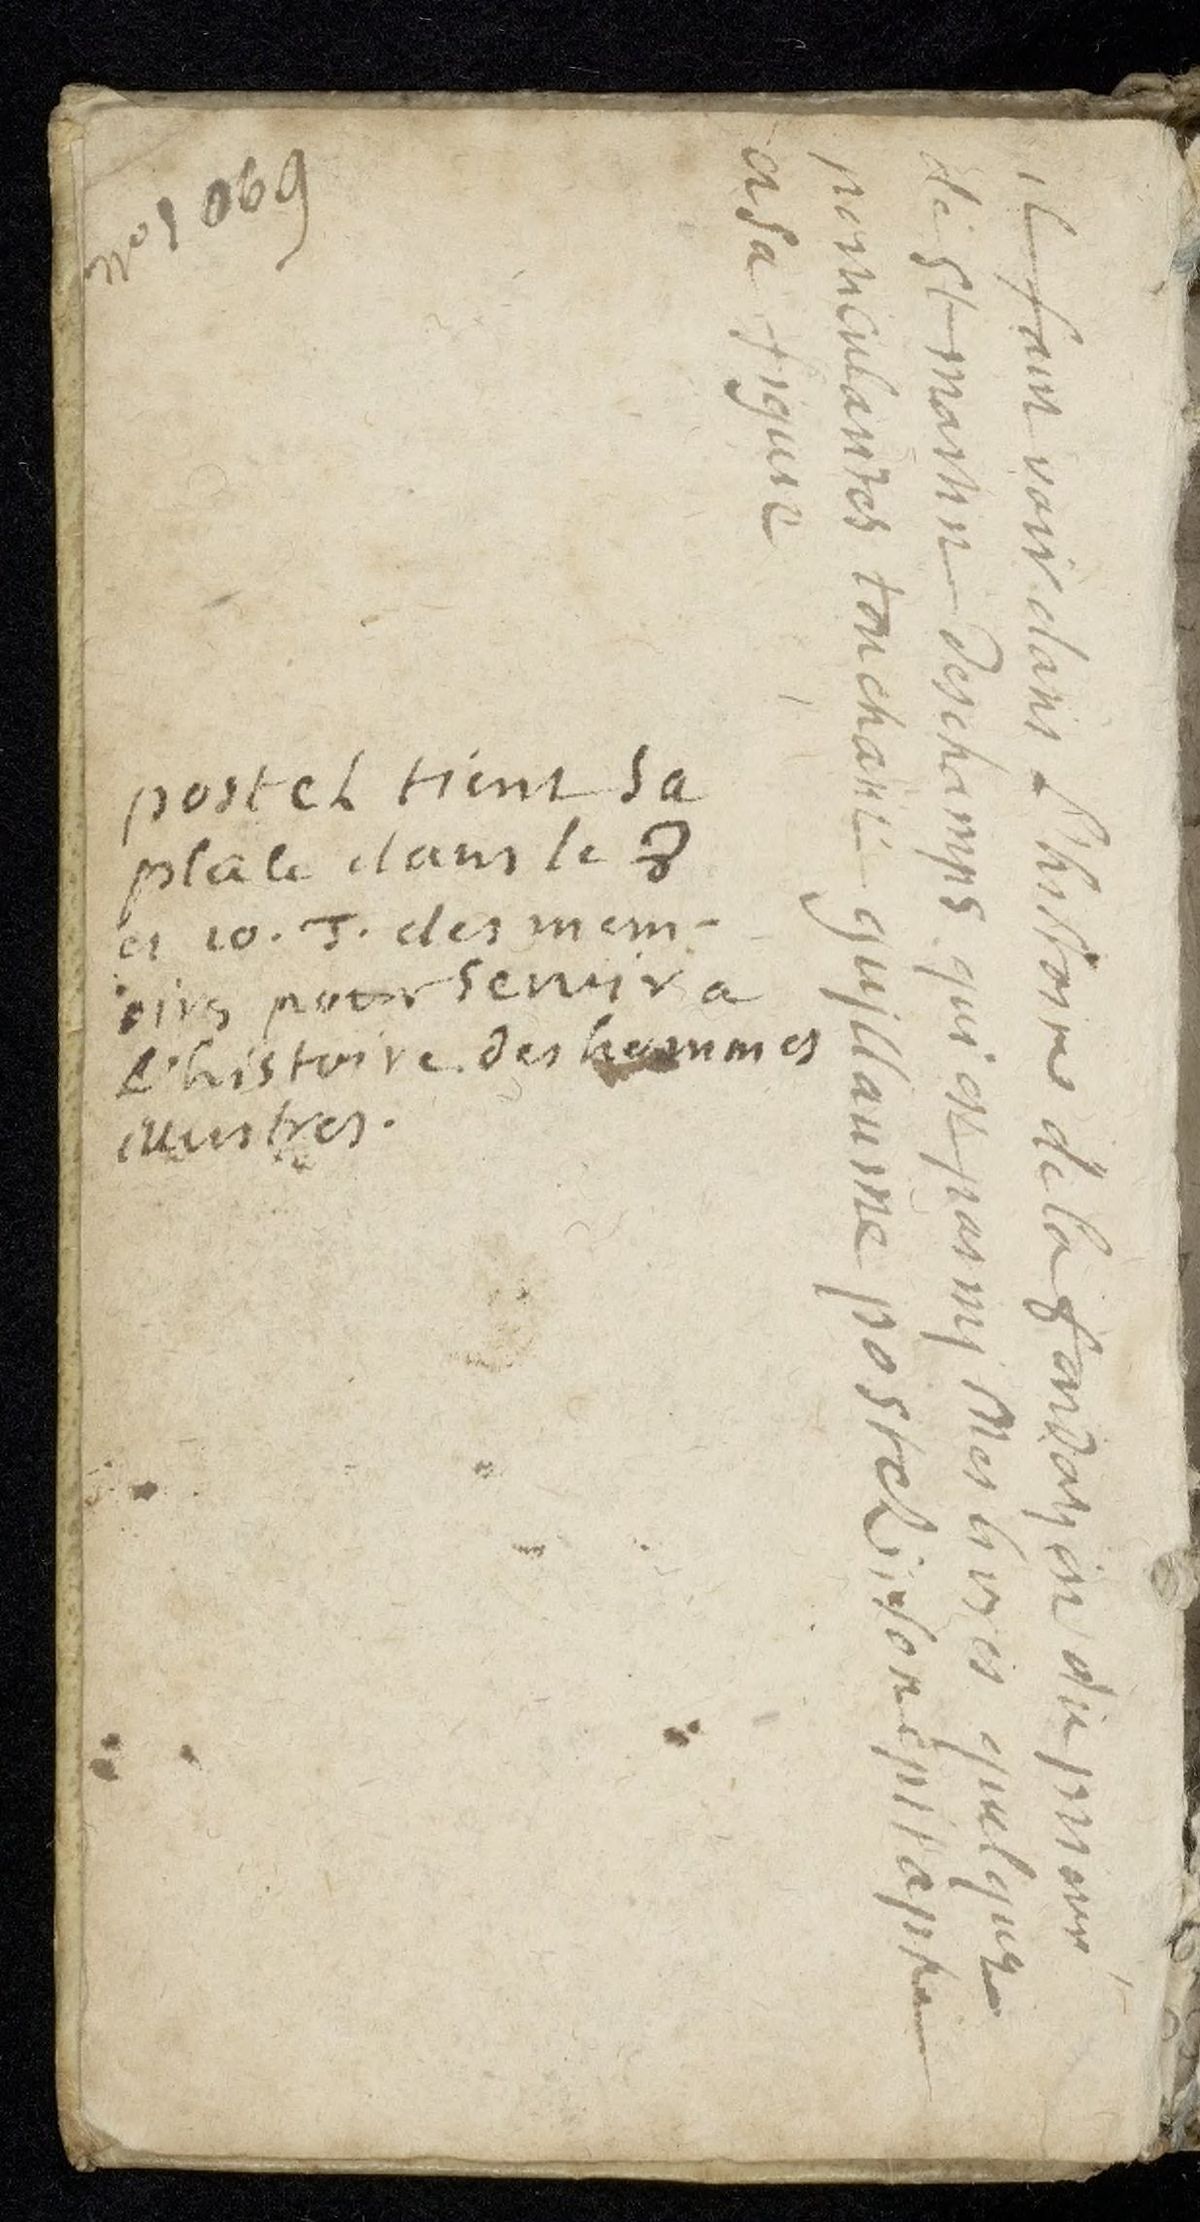 n° 1069
il faut voir dans l'histoire de la fondation du prieuré
de st martin deschamps qui est parmy mes livres quelques
particularites touchant guillaume postel, son epitaphe
et sa figure
postel tient sa
place dans le 8
et 10. T. des mem-
oires pour servir a
l'histoire des hommes
illustres.